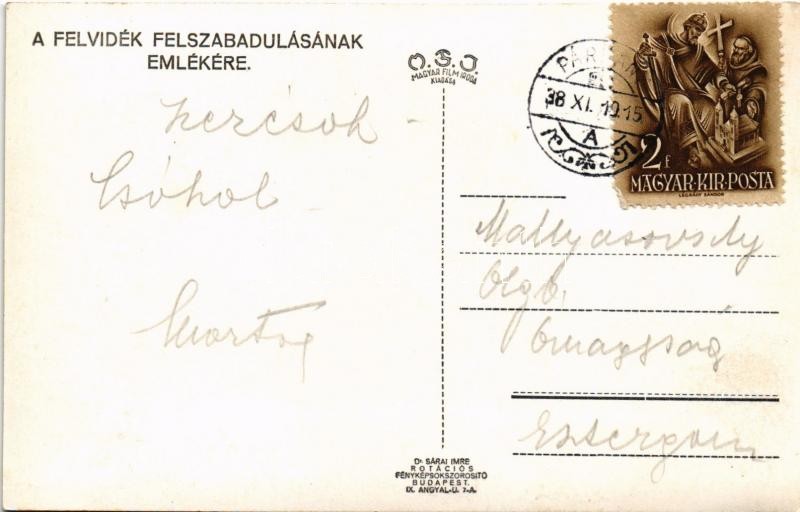 A FELVIDÉK FELSZABADULÁSÁNAK
EMLÉKÉRE.
Csóhol
O.S.J.
MAGYAR FILM IRODA
KIADÁSA
38 XI. 19.15
A
2f
MAGYAR·KIR·POSTA
LÉGRÁDY SÁNDOR
Mattyasovszky
Olga
Őnagysága
Esztergom
Dr. SÁRAI IMRE
ROTÁCIÓS
FÉNYKÉPSOKSZOROSITÓ
BUDAPEST.
IX. ANGYAL-U. 7-A.